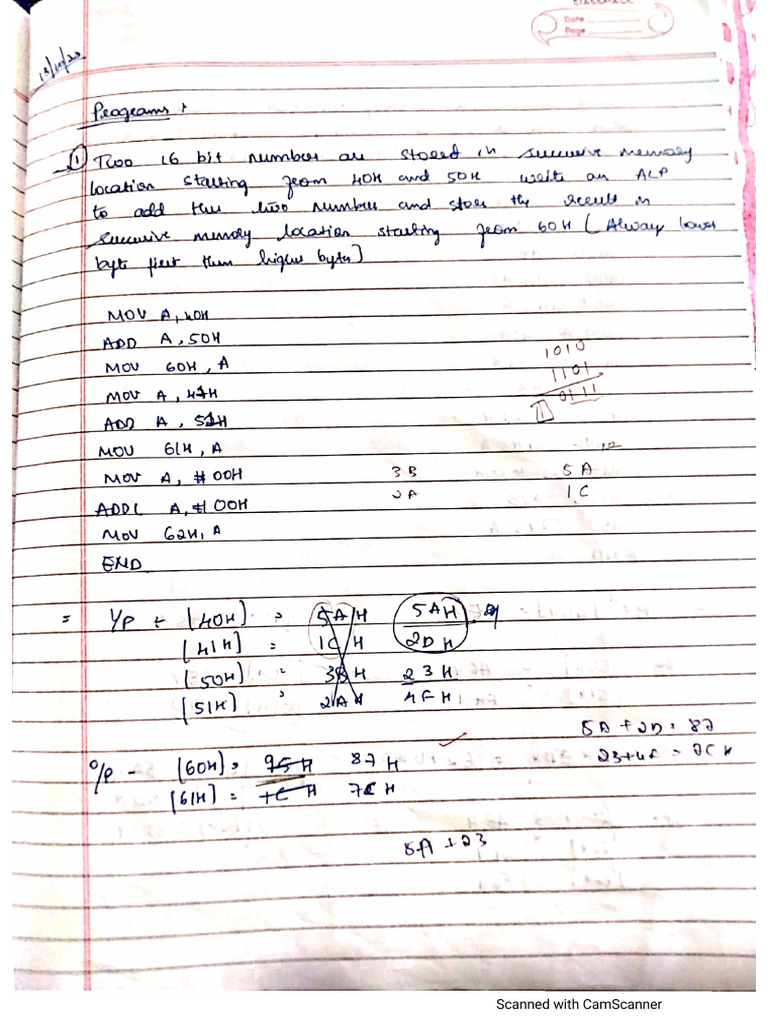 CLASSMATE
Date
Page
Programs :
1) Two 16 bit number are stored in successive memory
location starting from 40H and 50H write an ALP
to add this two number and store the result in
successive memory location starting from 60H ( Always lower
byte first then higher byte)
MOV A, 40H
ADD A, 50H
MOV 60H, A
MOV A, 41H
ADD A, 51H
MOV 61H, A
MOV A, #00H
ADDC A, #00H
MOV 62H, A
END
1010
1101
1 0111
3B 5A
2A 1C
= I/P - [40H] = 5A H 5AH
[41H] = 1C H 2D H
[50H] = 3B H 23 H
[51H] = 2A H 4F H
5A + 2D = 87
23+4F = 7C H
O/P - [60H] = 95 H 87 H
[61H] = 7C H
5A + 23
Scanned with CamScanner